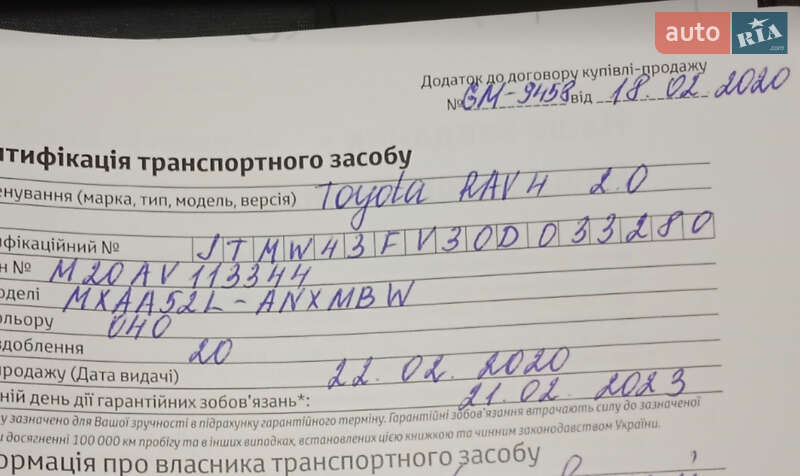 auto RIA .com
Додаток до договору купівлі-продажу
№ GM-9458 від 18.02.2020
нтифікація транспортного засобу
енування (марка, тип, модель, версія) Toyota RAV4 2.0
ифікаційний № JTMW43FV30D033280
н № M20AV113344
оделі MXAA52L-ANXMBW
ольору 040
здоблення 20
продажу (Дата видачі) 22.02.2020
ній день дії гарантійних зобов'язань*: 21.02.2023
у зазначено для Вашої зручності в підрахунку гарантійного терміну. Гарантійні зобов'язання втрачають силу до зазначеної
и досягненні 100 000 км пробігу та в інших випадках, встановлених цією книжкою та чинним законодавством України.
ормація про власника транспортного засобу